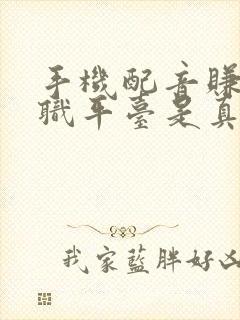 手機配音賺
職平臺是真
我家藍胖好凶